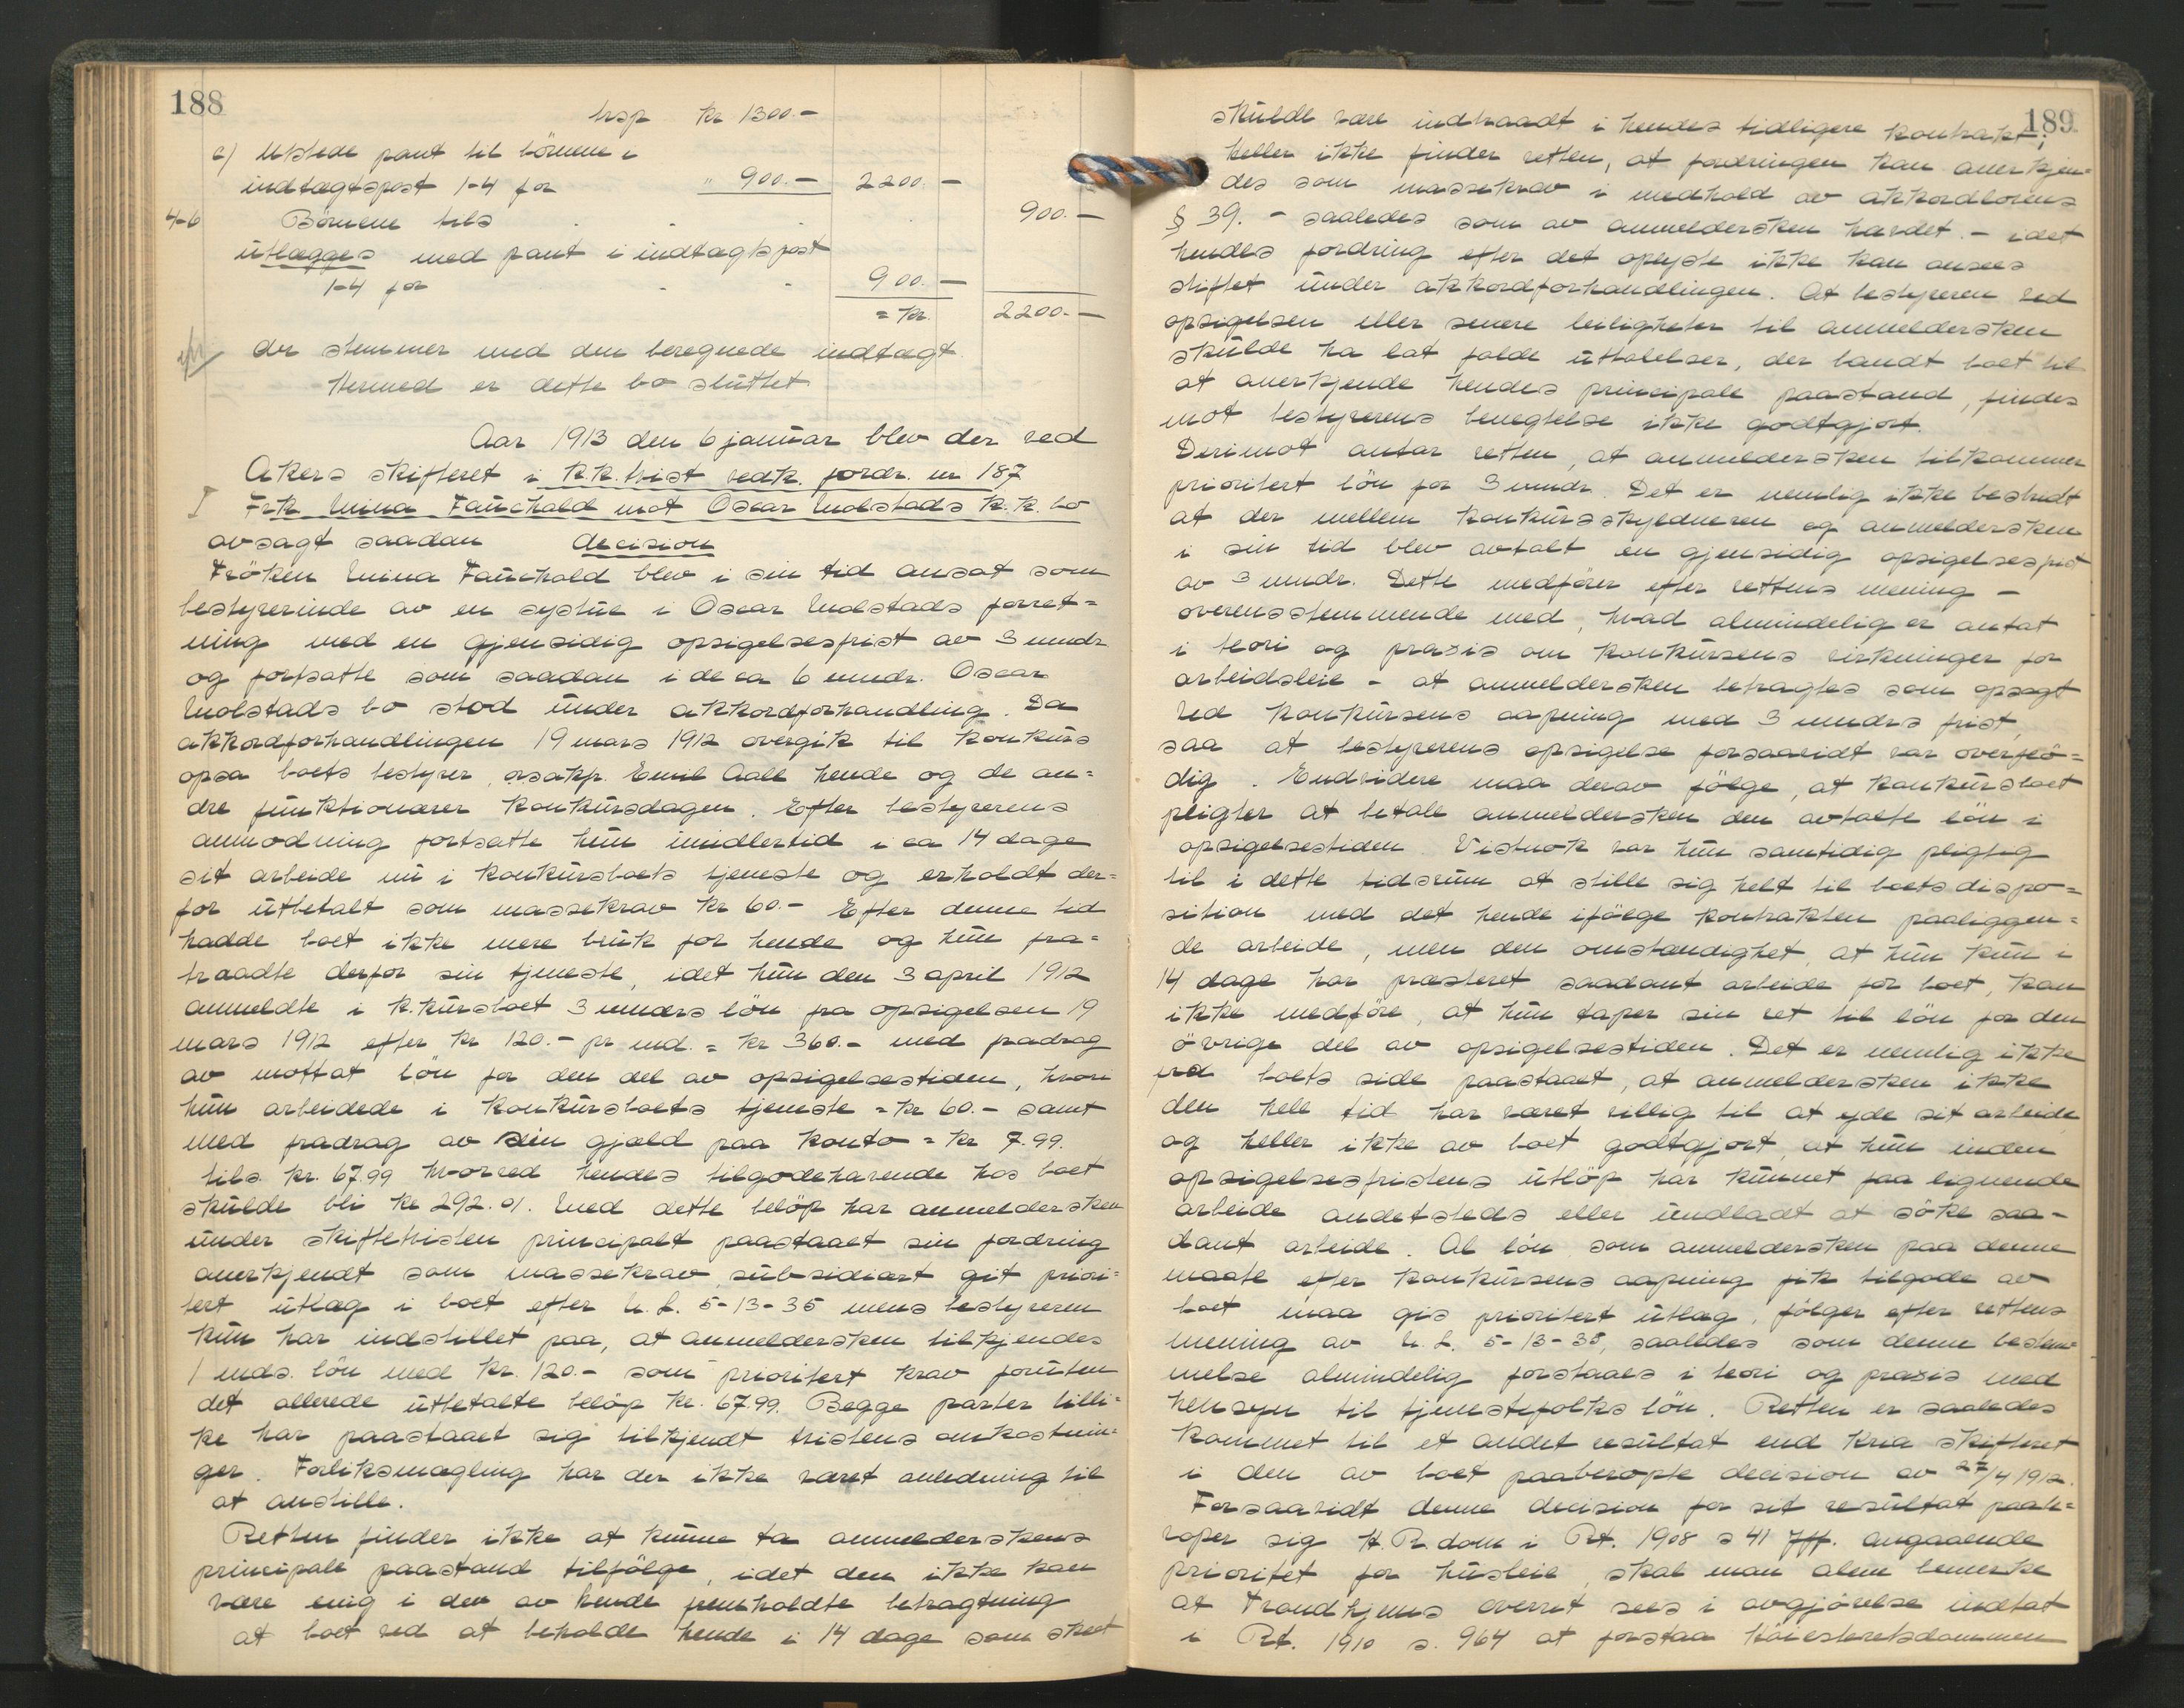 188
trsp kr 1300.-
c) Utstede pant til börnene i
indtægtspost 1-4 for " 900.- 2200.-
4-6 Börnene tils 900.-
utlægges med pant i indtægtspost
1-4 for 900.-
= Kr. 2200.-
der stemmer med den beregnede indtægt
Hermed er dette bo sluttet.
Aar 1913 den 6 januar blev der ved
Akers skifteret i k.k. tvist vedk. fordr. nr 187
Frk. Mina Fauchald mot Oscar Molstads k.k. bo
avsagt saadan decision
Fröken Mina Fauchald blev i sin tid ansat som
bestyrerinde av en systue i Oscar Molstads forret=
ning med en gjensidig opsigelsesfrist av 3 mndr
og fortsatte som saadan i de ca 6 mndr. Oscar
Molstads bo stod under akkordforhandling. Da
akkordforhandlingen 19 mars 1912 overgik til konkurs
opsa boets bestyrer, orsakf. Emil Aall hende og de an=
dre funktionærer konkursdagen. Efter bestyrerens
anmodning fortsatte hun imidlertid i ca 14 dage
sit arbeide nu i konkursboets tjeneste og erholdt der=
for utbetalt som massekrav kr 60.- Efter denne tid
hadde boet ikke mere bruk for hende og hun fra=
traadte derfor sin tjeneste, idet hun den 3 april 1912
anmeldte i k.kursboet 3 mndrs lön fra opsigelsen 19
mars 1912 efter kr 120.- pr md. = kr 360.- med fradrag
av mottat lön for den del av opsigelsestiden, hvori
hun arbeidede i konkursboets tjeneste = kr 60.- samt
med fradrag av sin gjæld paa konto = kr 7.99.
tils. kr. 67.99 hvorved hendes tilgodehavende hos boet
skulde bli kr 292.01. Med dette belöp har anmeldersken
under skiftetvisten principalt paastaaet sin fordring
anerkjendt som massekrav, subsidiært git priori=
tert utlæg i boet efter N.L. 5-13-35 mens bestyreren
kun har indstillet paa, at anmeldersken tilkjendes
1 mds. lön med kr. 120.- som prioritert krav foruten
det allerede utbetalte belöp kr. 67.99. Begge parter tilli=
ke har paastaaet sig tilkjendt tvistens omkostnin=
ger. Forliksmægling har der ikke været anledning til
at anstille.
Retten finder ikke at kunne ta anmelderskens
principale paastand tilfölge, idet den ikke kan
være enig i den av hende fremholdte betragtning
at boet ved at beholde hende i 14 dage som skeet
189
skulde være indtraadt i hendes tidligere kontrakt;
Heller ikke finder retten, at fordringen kan anerkjen=
des som massekrav i medhold av akkordlovens
§ 39. - saaledes som av anmeldersken hævdet. - idet
hendes fordring efter det oplyste ikke kan ansees
stiftet under akkordforhandlingen. At bestyreren ved
opsigelsen eller senere leiligheter til anmeldersken
skulde ha lat falde uttalelser, der bandt boet til
at anerkjende hendes principale paastand, findes
mot bestyrerens benegtelse ikke godtgjort.
Derimot antar retten, at anmeldersken tilkommer
prioritert lön for 3 mndr. Det er nemlig ikke bestridt
at der mellem konkursskyldneren og anmeldersken
i sin tid blev avtalt en gjensidig opsigelsesfrist
av 3 mndr. Dette medförer efter rettens mening -
overensstemmende med, hvad almindelig er antat
i teori og praxis om konkursens virkninger for
arbeidsleie - at anmeldersken betragtes som opsagt
ved konkursens aapning med 3 mndrs frist,
saa at bestyrerens opsigelse forsaavidt var overflö=
dig. Endvidere maa derav fölge, at konkursboet
pligter at betale anmeldersken den avtalte lön i
opsigelsestiden. Vistnok var hun samtidig pligtig
til i dette tidsrum at stille sig helt til boets dispo=
sition med det hende ifölge kontrakten paaliggen=
de arbeide, men den omstændighet, at hun kun i
14 dage har præsteret saadant arbeide for boet, kan
ikke medföre, at hun taper sin ret til lön for den
övrige del av opsigelsestiden. Det er nemlig ikke
fra boets side paastaaet, at anmeldersken ikke
den hele tid har været villig til at yde sit arbeide
og heller ikke av boet godtgjort, at hun inden
opsigelsesfristens utlöp har kunnet faa lignende
arbeide andetsteds eller undladt at söke saa-
dant arbeide. Al lön som anmeldersken paa denne
maate efter konkursens aapning fik tilgode av
boet maa gis prioritert utlæg, fölger efter rettens
mening av N.L. 5-13-35, saaledes som denne bestem=
melse almindelig forstaaes i teori og praxis med
hensyn til tjenestefolks lön. Retten er saaledes
kommet til et andet resultat end Kria skifteret
i den av boet paaberopte decision av 27/4 1912.
Forsaavidt denne decision for sit resultat paabe=
roper sig H.R. dom i Rt. 1908 s 41 fff. angaaende
prioritet for husleie, skal man alene bemerke
at Trondhjems overret sees i avgjörelse indtat
i Rt. 1910 s. 964 at forstaa höiesteretsdommen